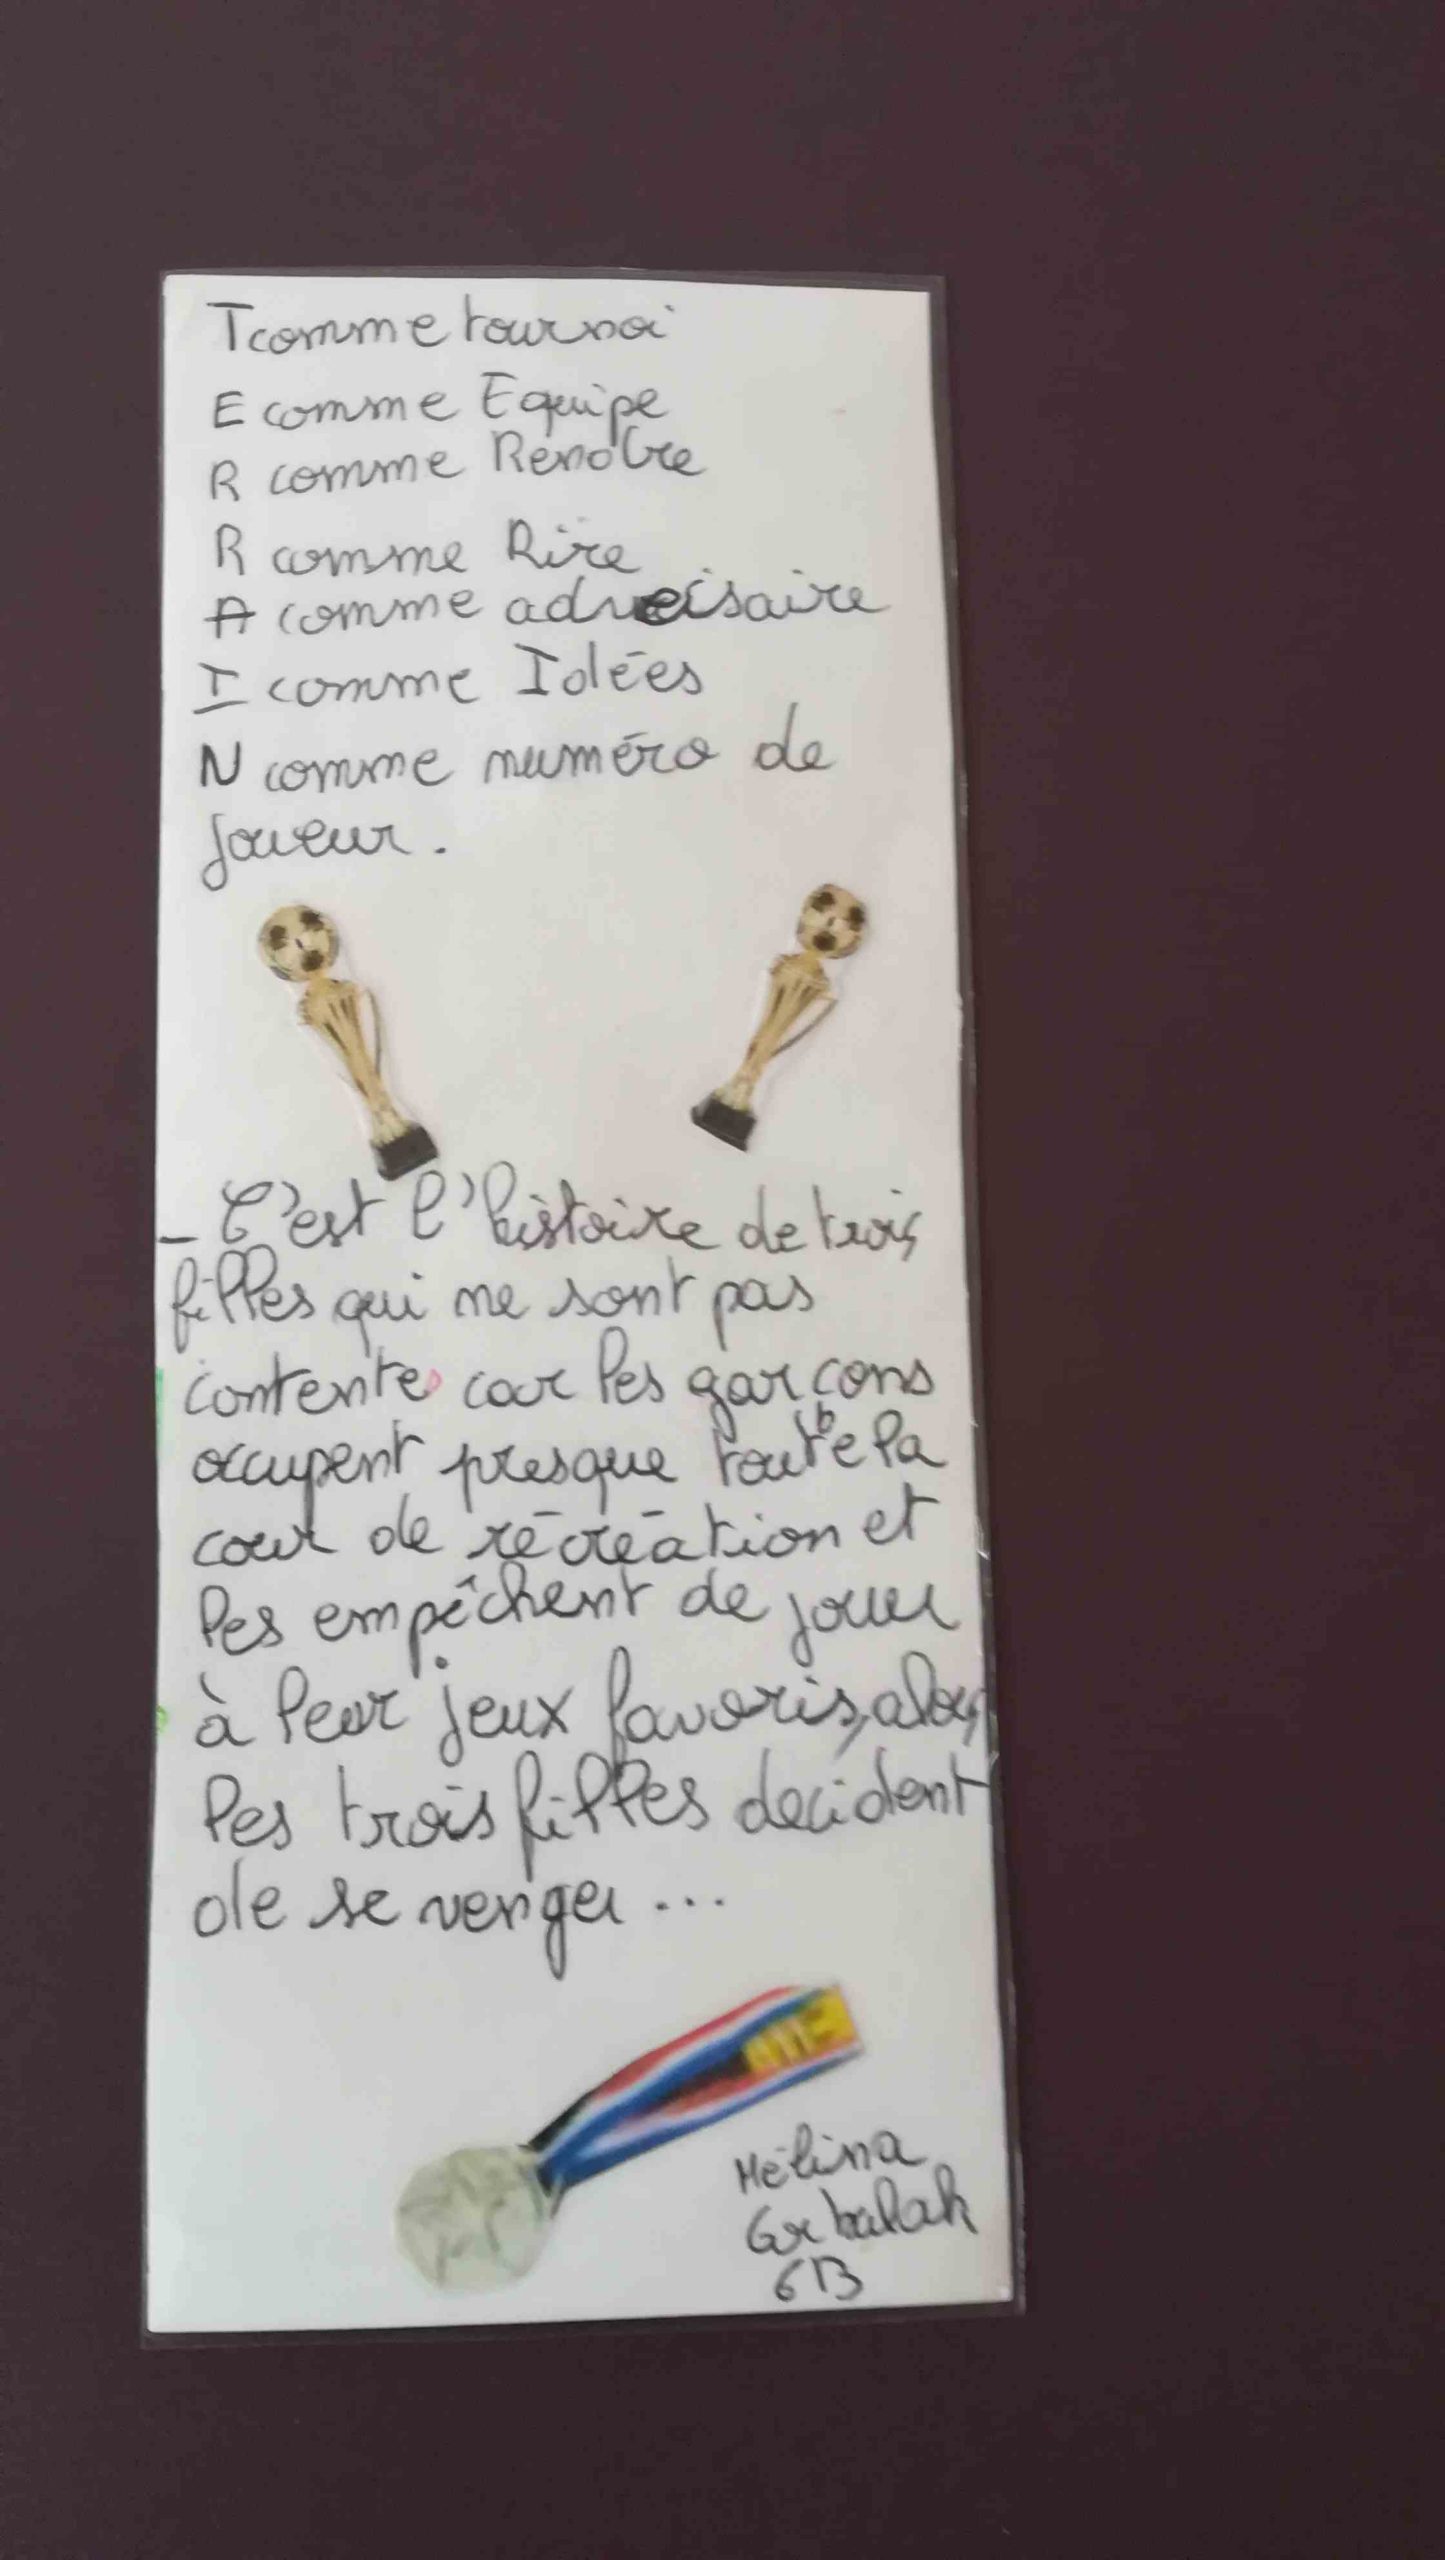 T comme tournoi
E comme Equipe
R comme Rendre
R comme Rire
A comme adversaire
I comme Idées
N comme numéro de
joueur.
- C'est l'histoire de trois
filles qui ne sont pas
contentes car les garcons
occupent presque toute la
cour de récréation et
les empêchent de jouer
à leur jeux favoris, alors
les trois filles decident
de se venger...
Mélina
6B